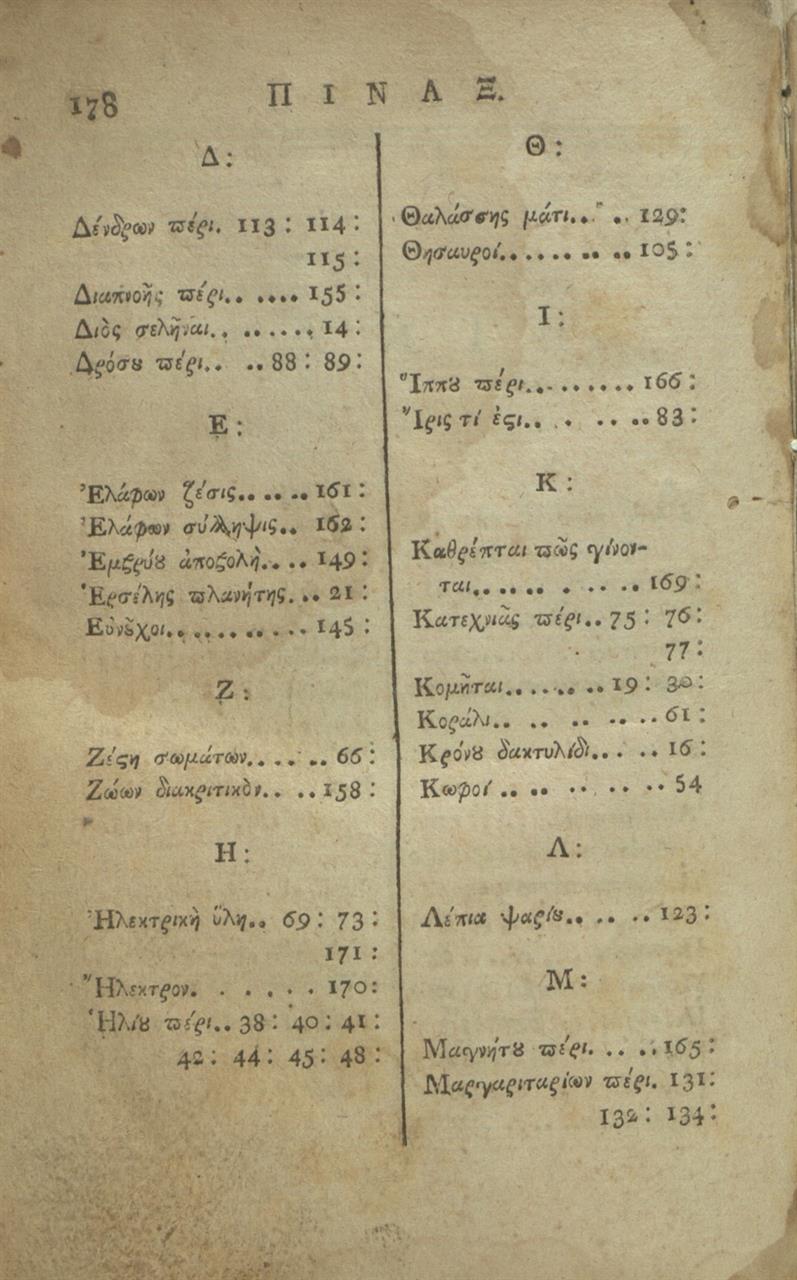 178
Π Ι Ν Α Ξ.
Δ:
Δένδρων πέρι. 113: 114:
115:
Διαπνοῆς πέρι.. .... 155:
Διὸς σελῆναι.. ...... 14:
Δρόσου πέρι.. .. 88: 89:
Ε:
Ἐλάφων ζέσις.. .. .. 161:
Ἐλάφων σύλληψις.. 162:
Ἐμβρύου ἀποβολὴ.. .. 149:
Ἑρσέλης πλανήτης. .. 21:
Εὐνοῦχοι.. .......... 145:
Ζ:
Ζέστη σωμάτων.. .. .. 66:
Ζώων διακριτικὸν.. .. 158:
Η:
Ἠλεκτρικὴ ὕλη.. 69: 73:
171:
Ἤλεκτρον. . . . . . 170:
Ἡλίου πέρι.. 38: 40: 41:
42: 44: 45: 48:
Θ:
Θαλάσσης μάτι.. .. 129:
Θησαυροί....... .. .. 105:
Ι:
Ἵππου πέρι.......... 166:
Ἴρις τί ἐστι.. . . .. .. 83:
Κ:
Καθρέπται πῶς γίνον-
ται.. .. .. . .. .. 169:
Κατεχνιᾶς πέρι.. 75: 76:
77:
Κομῆται....... .. 19: 30:
Κοράλι.. .. .. .. .. 61:
Κρόνου δακτυλίδι... .. 16:
Κωφοί .. .. .. .. .. 54
Λ:
Λέπια ψαρίου.. .. .. 123:
Μ:
Μαγνήτου πέρι. .. .. 165:
Μαργαριταρίων πέρι. 131:
132: 134: